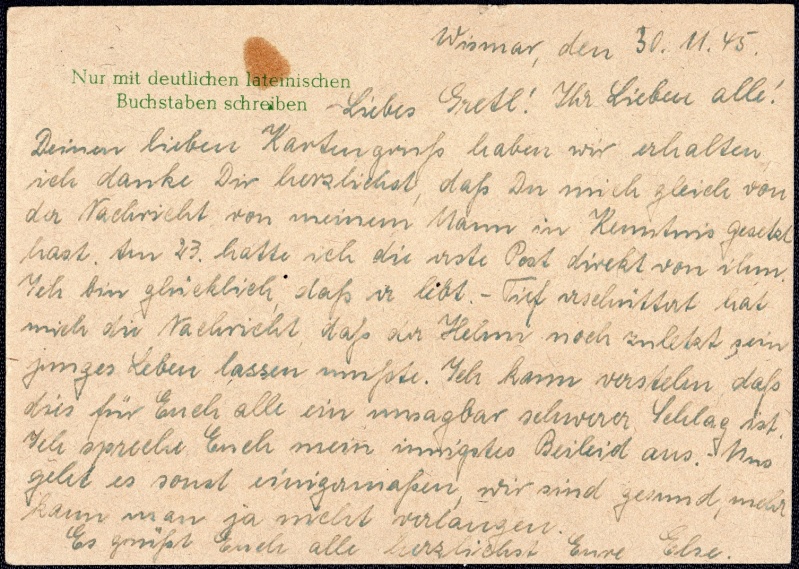 Wismar, den 30. 11. 45.
Nur mit deutlichen lateinischen
Buchstaben schreiben
Liebes Gretl! Ihr Lieben alle!
Deinen lieben Kartengruß haben wir erhalten,
ich danke Dir herzlichst, daß Du mich gleich von
der Nachricht von meinem Mann in Kenntnis gesetzt
hast. Am 23. hatte ich die erste Post direkt von ihm.
Ich bin glücklich, daß er lebt. - Tief erschüttert hat
mich die Nachricht, daß der Helm noch zuletzt sein
junges Leben lassen mußte. Ich kann verstehn, daß
dies für Euch alle ein unsagbar schwerer Schlag ist.
Ich spreche Euch mein innigstes Beileid aus. - Uns
geht es sonst einigermaßen, wir sind gesund, mehr
kann man ja nicht verlangen.
Es grüßt Euch alle herzlichst Eure Else.